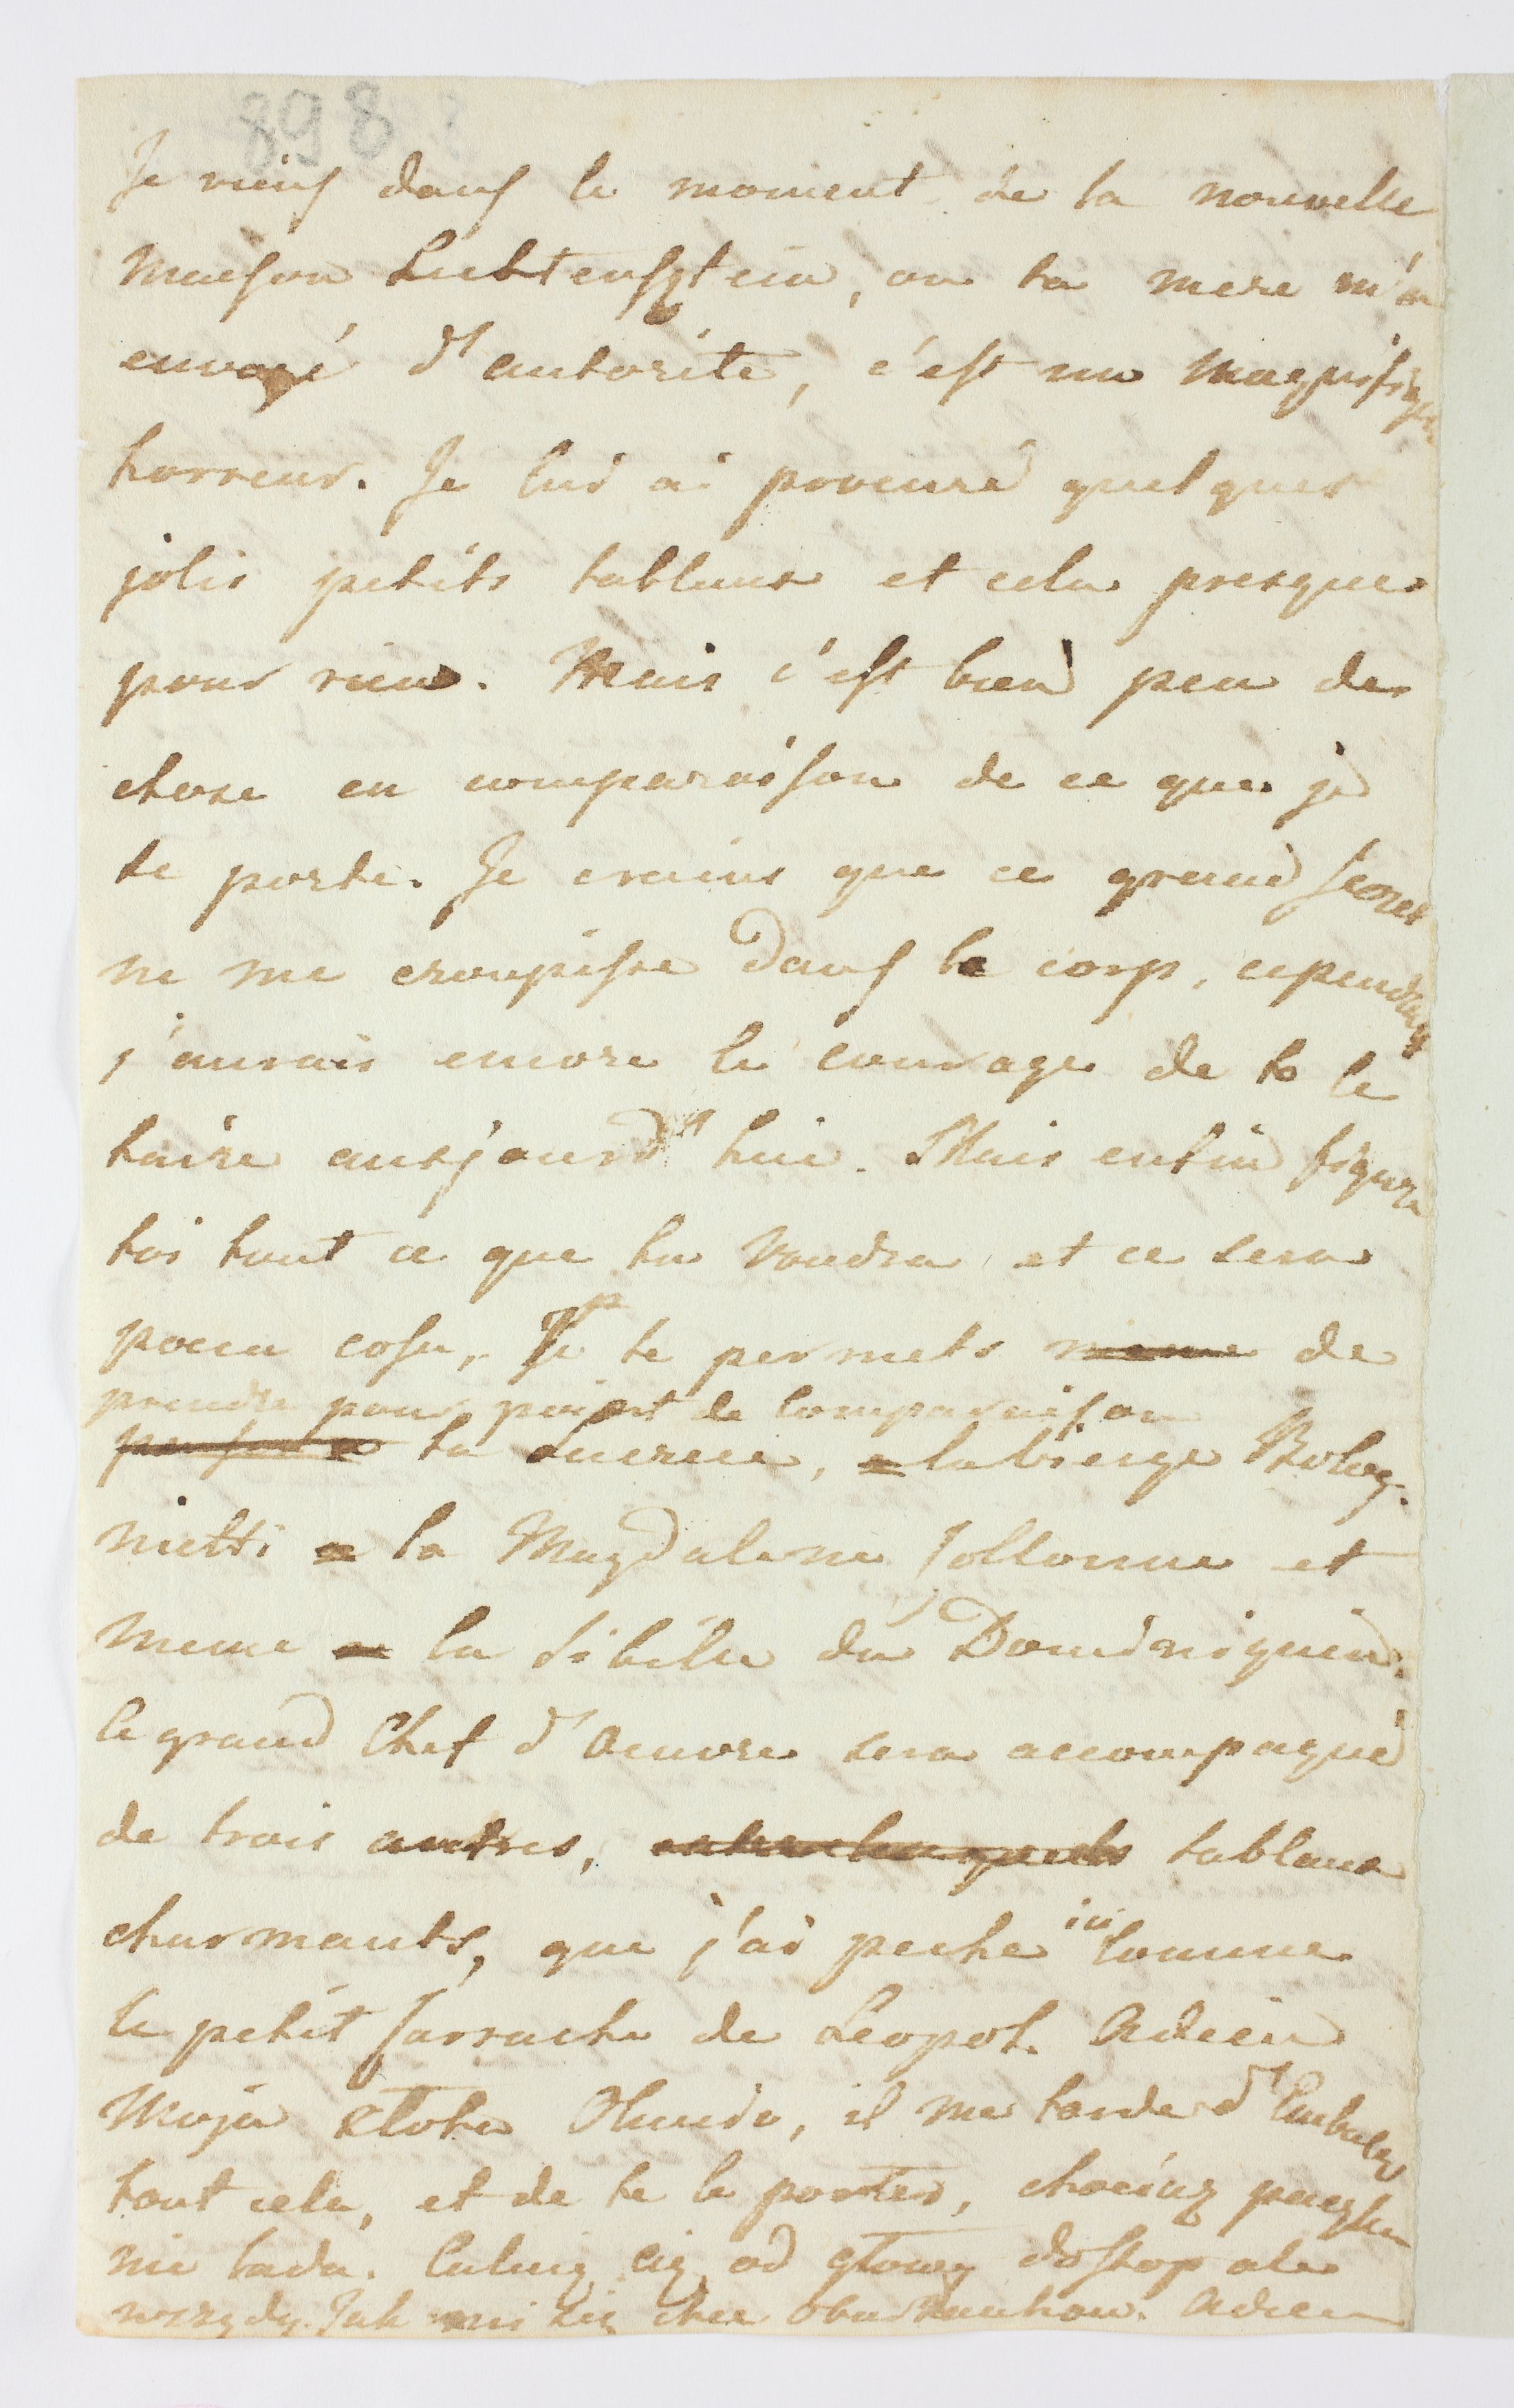 898
Je viens dans le moment de la nouvelle
maison Lichtensztein, ou ta mere m'a
envoyé d'autorité, c'est un magnifique
horreur. Je lui ai procuré quelques
jolis petits tableaux et cela presque
pour rien. Mais c'est bien peu de
chose en comparaison de ce que je
te porte. Je crains que ce grand secret
ne me croupisse dans le corp, cependant
j'aurais encore le courage de te le
taire ausjourd'hui. Mais enfin figure
toi tout ce que tu voudra et ce sera
poca cosa, Je te permets meme de
prendre pour point de comparaison
ta Lucrece, a la vierge Bolog-
nietti a la Magdalene Collonne et
meme a la Sibile du Dominiquin.
Ce grand Chef d'oeuvre sera accompagné
de trois autres, tableaux
charmants, que j'ai peche ici comme
le petit Carrache de Leopol. Adieu
Moja złota Olunde, il me tarde d'embaler
tout cela, et de te le porter, chociaz paczka
nie lada. Caluię cię od głowy do stop ale
wszędy. Jak mi się chce Adieu